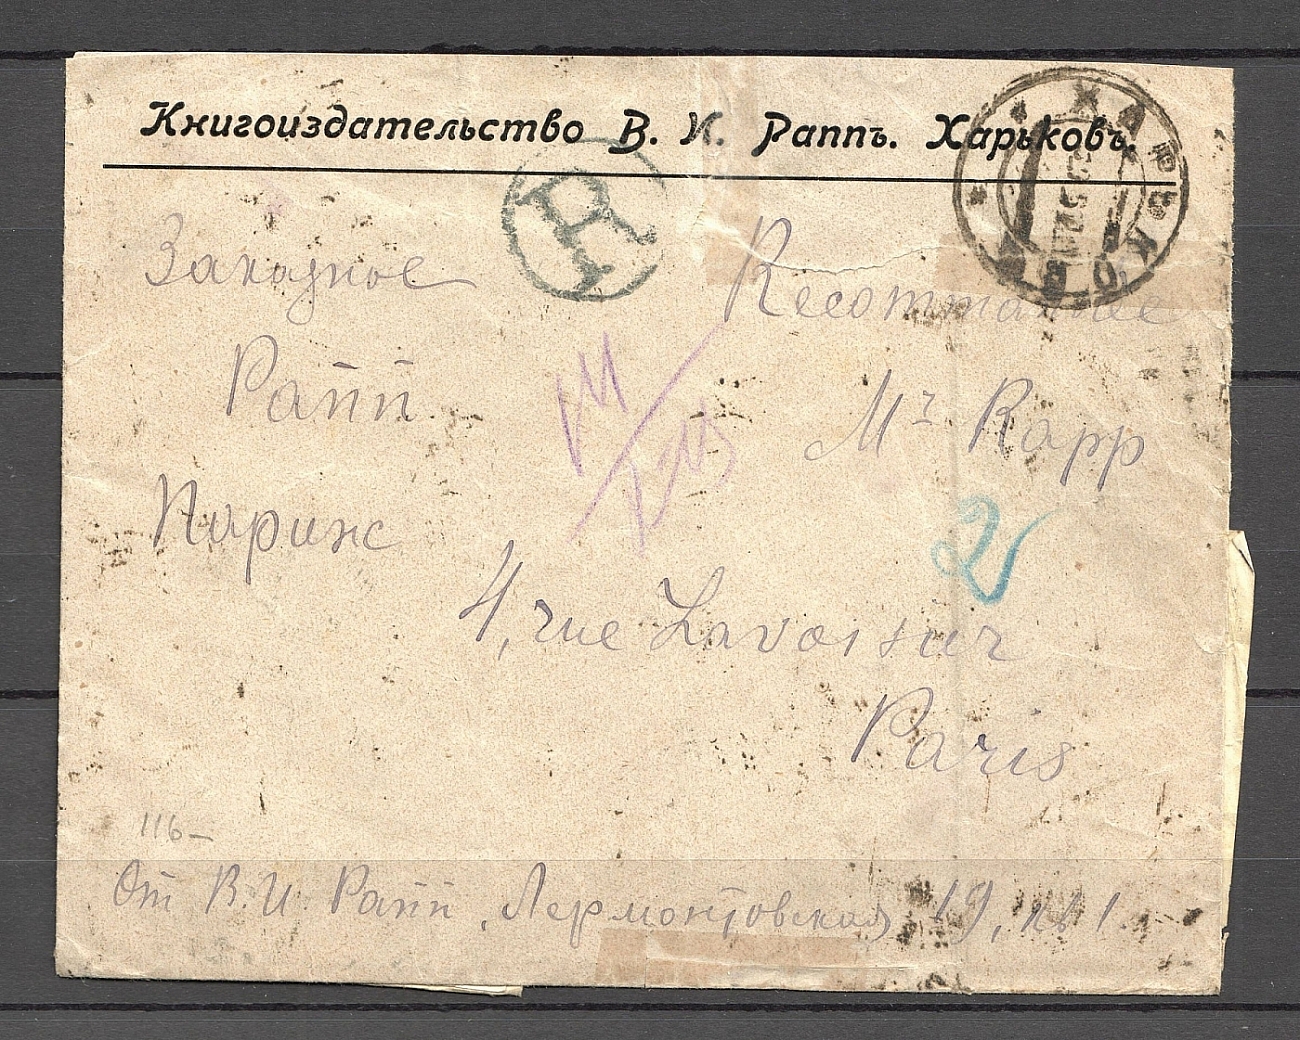 Книгоиздательство В. И. Раппъ. Харьковъ.
ХАРЬКОВЪ
R
Заказное
Recommandée
Рапп
Mr Rapp
Париж
2
4, rue Lavoisier
Paris
116-
От В. И. Рапп, Лермонтовская 19, кв 1.